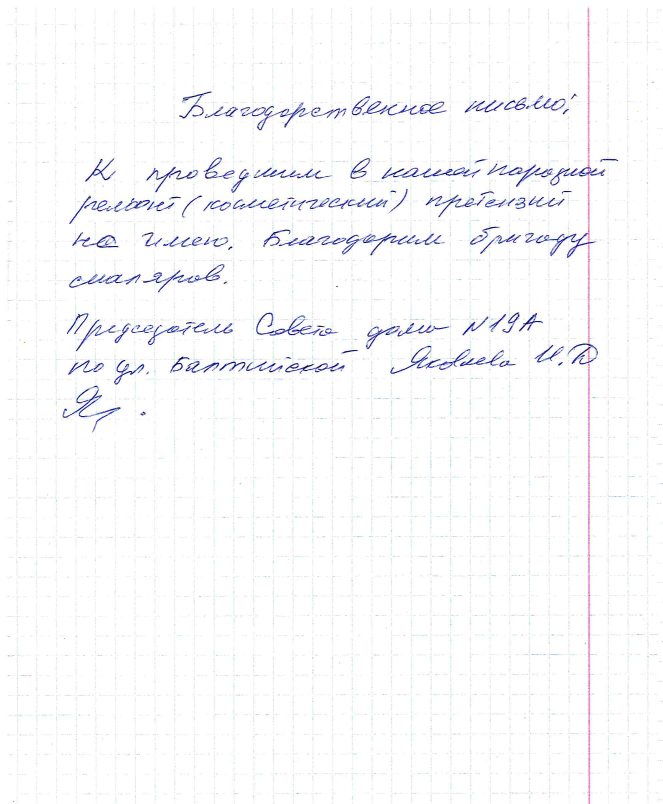 Благодарственное письмо,
К проведшим в нашей парадной
ремонт (косметический) претензий
не имею. Благодарим бригаду
смаляров.
Председатель Совета дома N 19А
по ул. Балтийской Яковлева И.